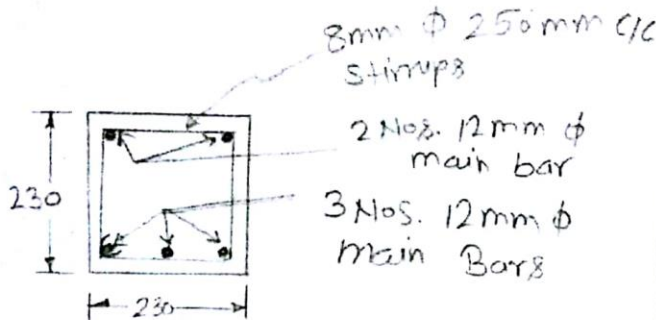 8mm ϕ 250mm c/c
stirrups
2 Nos. 12mm ϕ
main bar
230
3 Nos. 12mm ϕ
Main Bars
230